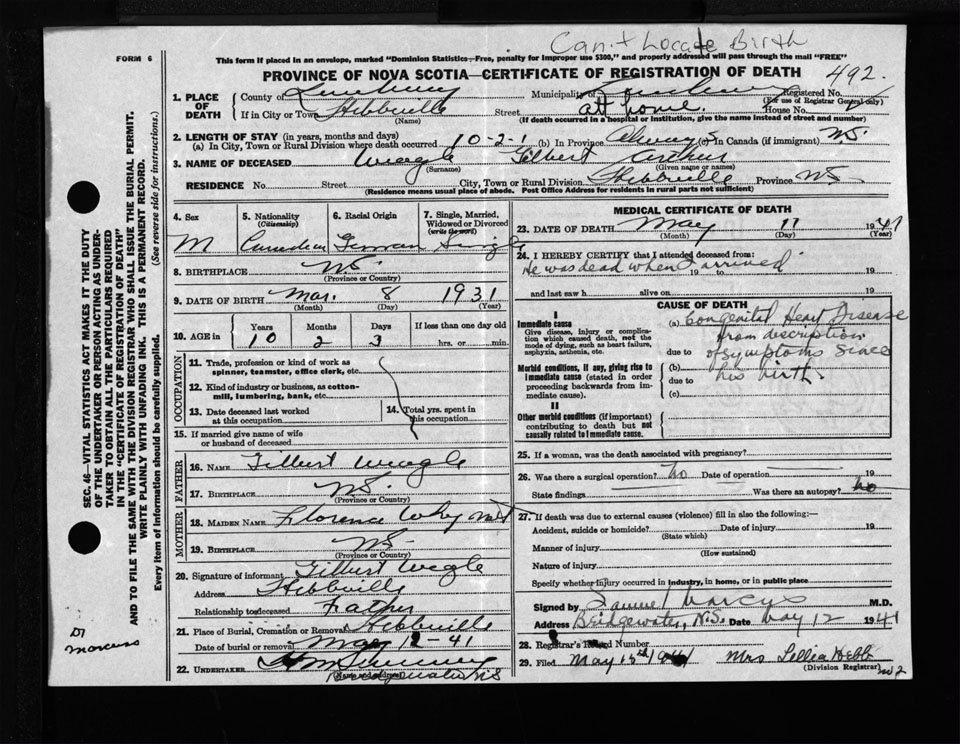 Can't Locate Birth
FORM 6
This form if placed in an envelope, marked "Dominion Statistics—Free, penalty for improper use $300," and properly addressed will pass through the mail "FREE"
PROVINCE OF NOVA SCOTIA—CERTIFICATE OF REGISTRATION OF DEATH
492.
1. PLACE OF DEATH
County of Lunenburg Municipality of Registered No.
(For use of Registrar General only)
If in City or Town Hebbville Street at home. House No.
(Name) (If death occurred in a hospital or institution, give the name instead of street and number)
2. LENGTH OF STAY (in years, months and days)
(a) In City, Town or Rural Division where death occurred 10-2-1 (b) In Province Always (c) In Canada (if immigrant) N.S.
3. NAME OF DECEASED Weagle Gilbert Arthur
(Surname) (Given name or names)
RESIDENCE No. Street City, Town or Rural Division Hebbville Province N.S.
(Residence means usual place of abode. Post Office Address for residents in rural parts not sufficient)
4. Sex M
5. Nationality (Citizenship) Canadian
6. Racial Origin German
7. Single, Married, Widowed or Divorced (write the word) Single
8. BIRTHPLACE N.S.
(Province or Country)
9. DATE OF BIRTH Mar. 8 1931
(Month) (Day) (Year)
10. AGE in Years Months Days If less than one day old
10 2 3 hrs. or min.
OCCUPATION
11. Trade, profession or kind of work as spinner, teamster, office clerk, etc.
12. Kind of industry or business, as cotton-mill, lumbering, bank, etc.
13. Date deceased last worked at this occupation
14. Total yrs. spent in this occupation
15. If married give name of wife or husband of deceased
FATHER
16. NAME Gilbert Weagle
17. BIRTHPLACE N.S.
(Province or Country)
MOTHER
18. MAIDEN NAME Florence Whynot
19. BIRTHPLACE N.S.
(Province or Country)
20. Signature of informant Gilbert Wegle
Address Hebbville
Relationship to deceased Father
21. Place of Burial, Cremation or Removal Hebbville
Date of burial or removal May 12-41
22. UNDERTAKER
(Name and address)
MEDICAL CERTIFICATE OF DEATH
23. DATE OF DEATH May 11 1941
(Month) (Day) (Year)
24. I HEREBY CERTIFY that I attended deceased from:
He was dead when I arrived
19 to 19
and last saw h alive on 19
CAUSE OF DEATH
I
Immediate cause
Give disease, injury or complication which caused death, not the mode of dying, such as heart failure, asphyxia, asthenia, etc.
Morbid conditions, if any, giving rise to immediate cause (stated in order proceeding backwards from immediate cause).
II
Other morbid conditions (if important) contributing to death but not causally related to immediate cause.
(a) Congenital Heart Disease
from discription
due to of symptoms since
(b) his birth.
due to
(c)
25. If a woman, was the death associated with pregnancy?
26. Was there a surgical operation? no Date of operation 19
State findings Was there an autopsy? no
27. If death was due to external causes (violence) fill in also the following:—
Accident, suicide or homicide? Date of injury 19
(State which)
Manner of injury
(How sustained)
Nature of injury
Specify whether injury occurred in industry, in home, or in public place
Signed by Samuel Marcus M.D.
Address Bridgewater, N.S. Date May 12 1941
28. Registrar's Record Number
29. Filed May 15th 1941 Mrs Lellia Hebb
(Division Registrar)
no 2
SEC. 46—VITAL STATISTICS ACT MAKES IT THE DUTY
OF THE UNDERTAKER OR PERSON ACTING AS UNDER-
TAKER TO OBTAIN ALL THE PARTICULARS REQUIRED
IN THE "CERTIFICATE OF REGISTRATION OF DEATH"
AND TO FILE THE SAME WITH THE DIVISION REGISTRAR WHO SHALL ISSUE THE BURIAL PERMIT.
WRITE PLAINLY WITH UNFADING INK. THIS IS A PERMANENT RECORD.
Every item of information should be carefully supplied. (See reverse side for instructions.)
Dr
Marcus